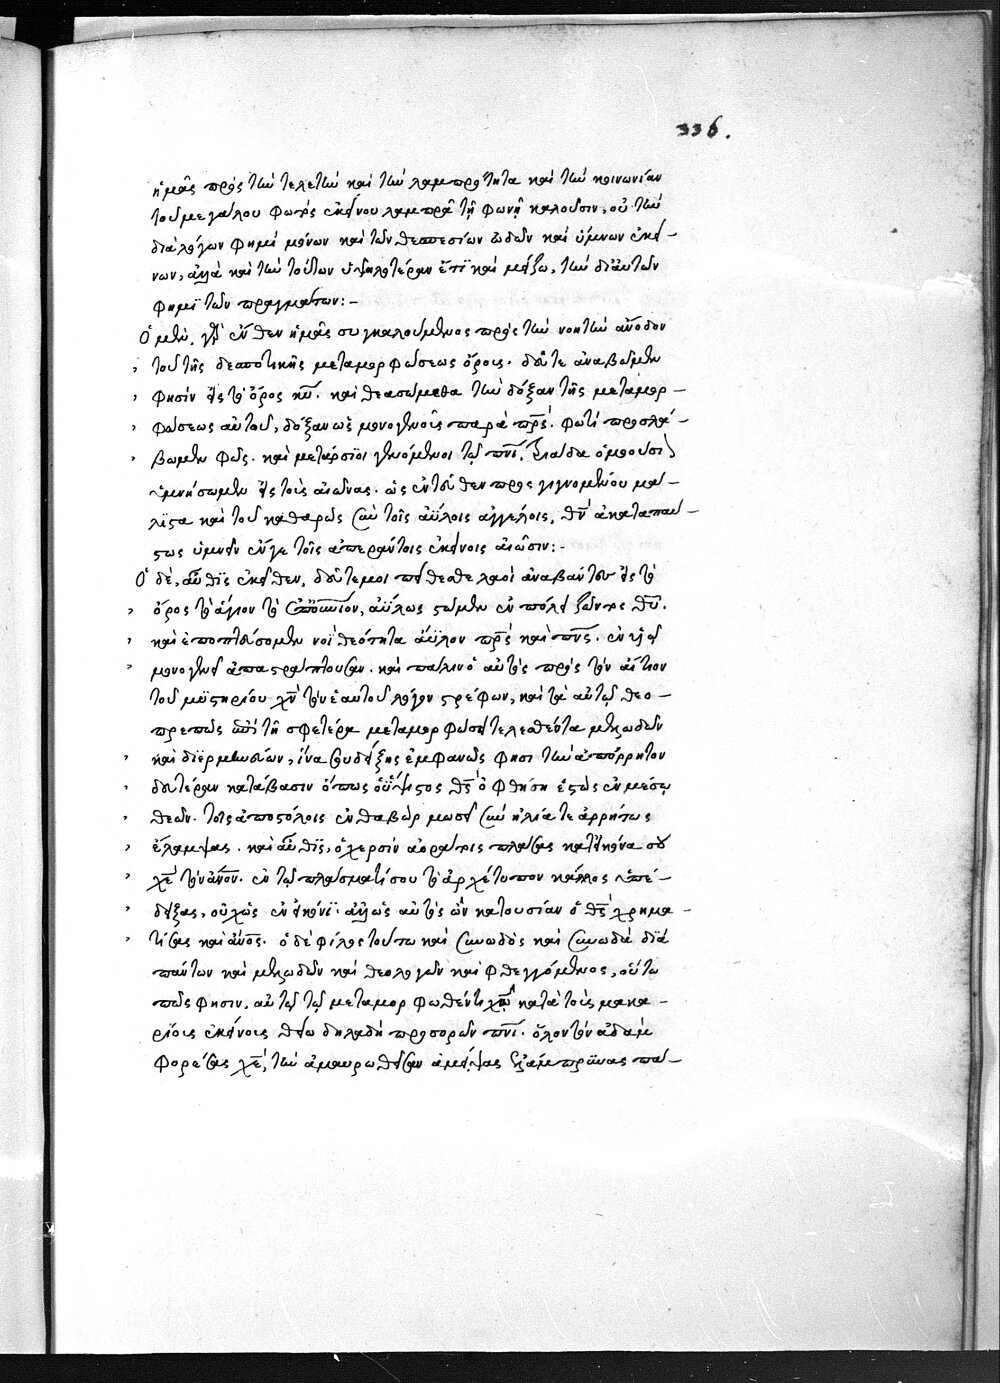 336.
ἡμᾶς πρὸς τὴν τελετὴν καὶ τὴν λαμπρότητα καὶ τὴν κοινωνίαν
τοῦ μεγάλου φωτὸς ἐκείνου λαμπρᾷ τῇ φωνῇ καλοῦσιν, οὐ τῶν
διαλόγων φημὶ μόνων καὶ τῶν θεσπεσίων ᾠδῶν καὶ ὕμνων ἐκεί-
νων, ἀλλὰ καὶ τὴν τούτων ὑψηλοτέραν ἔτι καὶ μείζω, τὴν δι' αὐτῶν
φημὶ τῶν πραγμάτων:-
Ὁ μὲν, ἐντεῦθεν ἡμᾶς συγκαλούμενος πρὸς τὴν νοητὴν ἄνοδον
τοῦ τῆς δεσποτικῆς μεταμορφώσεως ὄρους. δεῦτε ἀναβῶμεν
φησὶν εἰς τὸ ὄρος κυ. καὶ θεασώμεθα τὴν δόξαν τῆς μεταμορ-
φώσεως αὐτοῦ, δόξαν ὡς μονογενοῦς παρὰ πρς. φωτὶ προσλά-
βωμεν φῶς. καὶ μετάρσιοι γενόμενοι τῷ πνι, τριάδα ὁμοούσιον
ὑμνήσωμεν εἰς τοὺς αἰῶνας. ὡς ἐντεῦθεν προσγιγνομένου μά-
λιστα καὶ τοῦ καθαρῶς σὺν τοῖς ἀΰλοις ἀγγέλοις, θν ἀκαταπαύ-
στως ὑμνεῖν ἔν γε τοῖς ἀπεράντοις ἐκείνοις αἰῶσιν:-
Ὁ δὲ, αὖθις ἐκεῖθεν, δεῦτέ μοι πείθεσθε λαοὶ ἀναβάντες εἰς τὸ
ὄρος τὸ ἅγιον τὸ ἐπουράνιον, ἀΰλως στῶμεν ἐν πόλει ζῶντος θυ.
καὶ ἐποπτεύσωμεν νοῒ θεότητα ἄϋλον πρς καὶ πνς. ἐν υἱῷ
μονογενεῖ ἀπαστράπτουσαν. καὶ πάλιν ὁ αὐτὸς πρὸς τὸν αἴτιον
τοῦ μυστηρίου χν τὸν ἑαυτοῦ λόγον στρέφων, καὶ τὰ αὐτῷ θεο-
πρεπῶς ἐπὶ τῇ σφετέρᾳ μεταμορφώσει τελεσθέντα μελῳδῶν
καὶ διερμηνεύων, ἵνα ὑποδείξῃς ἐμφανῶς φησὶ τὴν ἀπόρρητον
δευτέραν κατάβασιν ὅπως ὁ ὕψιστος θς ὀφθήσῃ ἑστὼς ἐν μέσῳ
θεῶν. τοῖς ἀποστόλοις ἐν θαβὼρ μωσεῖ σὺν ἠλίᾳ τε ἀρρήτως
ἔλαμψας. καὶ αὖθις, ὁ χερσὶν ἀοράτοις πλάσας κατ' εἰκόνα σου
χε τὸν ἄνον. ἐν τῷ πλάσματί σου τὸ ἀρχέτυπον κάλλος ὑπέ-
δειξας, οὐχ ὡς ἐν εἰκόνι ἀλλ' ὡς αὐτὸς ὢν κατουσίαν ὁ θς χρημα-
τίσας καὶ ἄνος. ὁ δὲ φίλος τούτω καὶ συνῳδὸς καὶ συνῳδὰ διὰ
πάντων καὶ μελῳδῶν καὶ θεολογῶν καὶ φθεγγόμενος, οὕτω
πώς φησιν, αὐτῷ τῷ μεταμορφωθέντι χω κατὰ τοὺς μακα-
ρίους ἐκείνους θείῳ δηλαδὴ προσορῶν πνι. ὅλον τὸν ἀδὰμ
φορέσας χε, τὴν ἀμαυρωθεῖσαν ἀμείψας ἐλάμπρυνας πά-